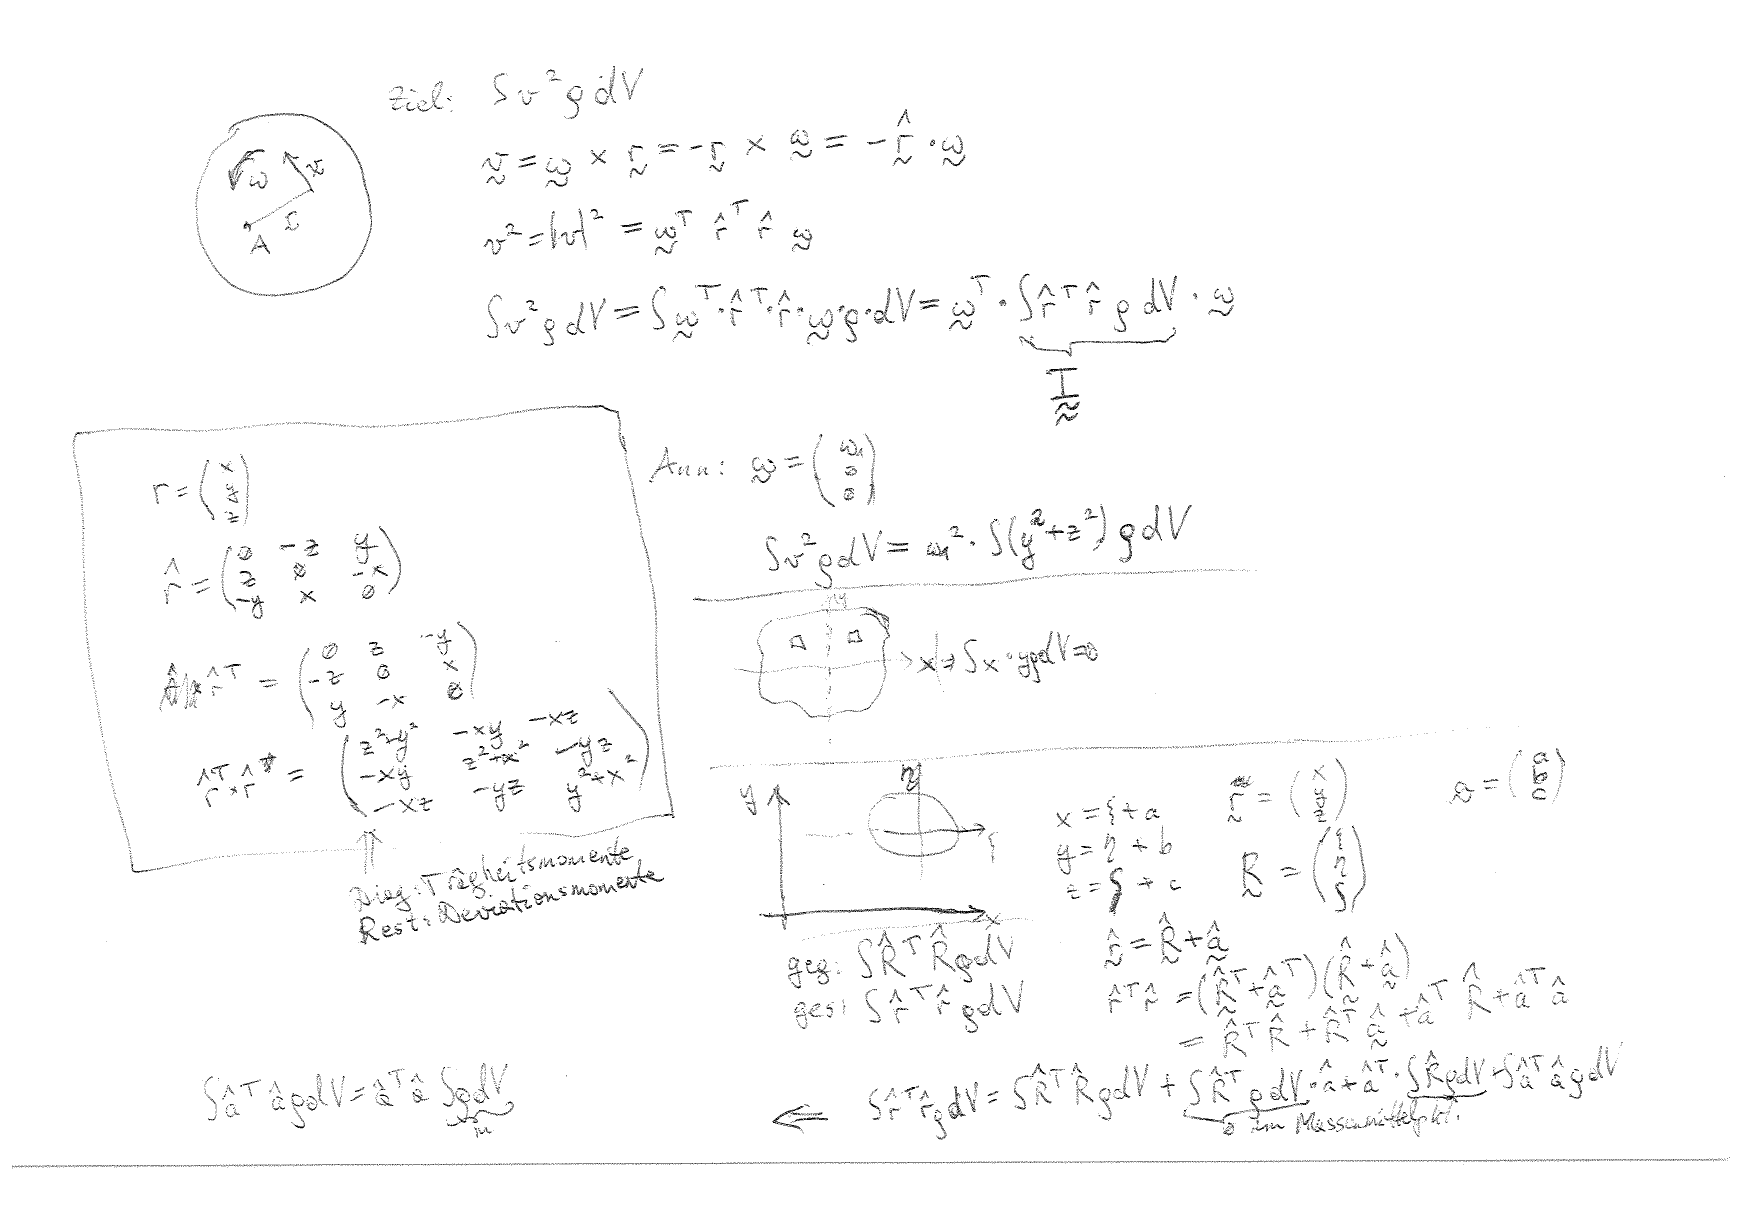 Ziel: ∫v²ρdV
v = ω × r = -r × ω = -r̂ · ω
ω v
A r
v² = |v|² = ωᵀ r̂ᵀ r̂ ω
∫v²ρdV = ∫ωᵀ·r̂ᵀ·r̂·ω·ρ·dV = ωᵀ · ∫r̂ᵀ r̂ ρ dV · ω
I
r = (x y z)
r̂ = (0 -z y
z 0 -x
-y x 0)
r̂ᵀ = (0 z -y
-z 0 x
y -x 0)
r̂ᵀ·r̂ = (z²+y² -xy -xz
-xy z²+x² -yz
-xz -yz y²+x²)
Diag: Trägheitsmomente
Rest: Deviationsmomente
Ann: ω = (ω₁ 0 0)
∫v²ρdV = ω₁² · ∫(y²+z²) ρdV
y
x ⇒ ∫x·yρdV=0
y η
ξ
x
x = ξ + a
y = η + b
z = ζ + c
r = (x y z)
a = (a b c)
R = (ξ η ζ)
geg: ∫R̂ᵀ R̂ρdV
ges: ∫r̂ᵀ r̂ ρdV
r̂ = R̂ + â
r̂ᵀ r̂ = (R̂ᵀ + âᵀ)(R̂ + â)
= R̂ᵀR̂ + R̂ᵀ â + âᵀ R̂ + âᵀ â
⇐ ∫r̂ᵀ r̂ρdV = ∫R̂ᵀ R̂ρdV + ∫R̂ᵀ ρdV · â + âᵀ · ∫R̂ρdV + ∫âᵀ âρdV
0 im Massenmittelpkt.
∫âᵀ âρdV = âᵀ â ∫ρdV
m